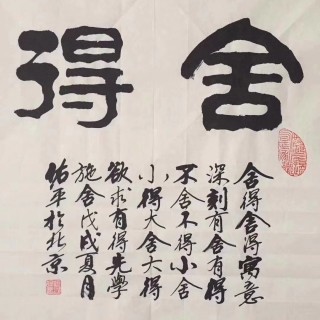 舍得
舍得舍得寓意
深刻有舍有得
不舍不得小舍
小得大舍大得
欲求有得先學
施舍戊戌夏月
佑平於北京